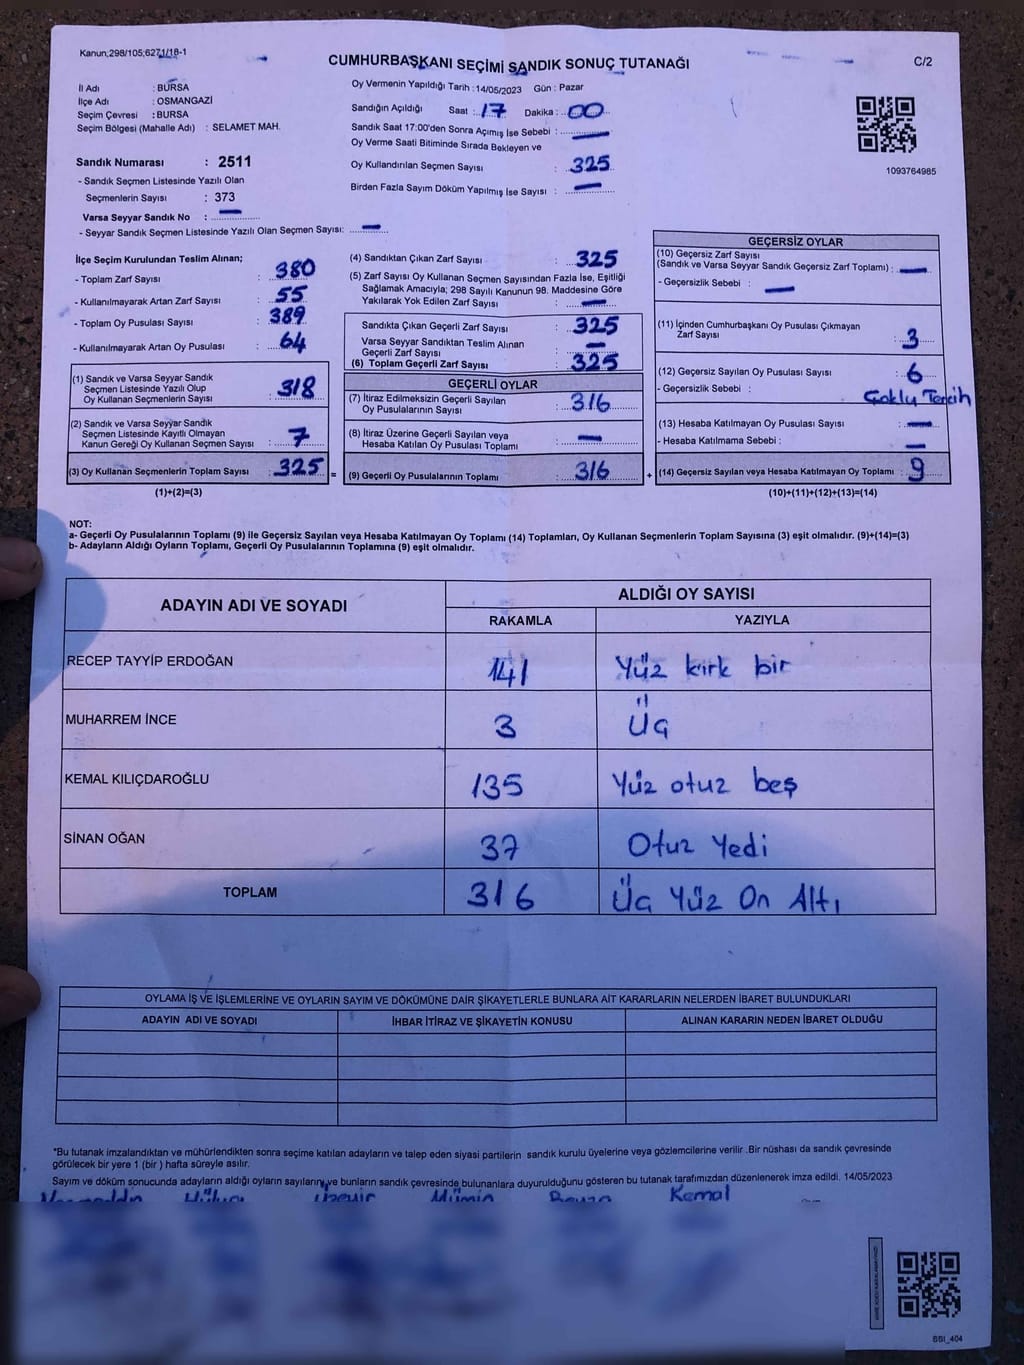 Kanun,298/105;6271/18-1
CUMHURBAŞKANI SEÇİMİ SANDIK SONUÇ TUTANAĞI
C/2
İl Adı : BURSA
İlçe Adı : OSMANGAZİ
Seçim Çevresi : BURSA
Seçim Bölgesi (Mahalle Adı) : SELAMET MAH.
Sandık Numarası : 2511
- Sandık Seçmen Listesinde Yazılı Olan
Seçmenlerin Sayısı : 373
Varsa Seyyar Sandık No : —
- Seyyar Sandık Seçmen Listesinde Yazılı Olan Seçmen Sayısı: —
Oy Vermenin Yapıldığı Tarih : 14/05/2023 Gün : Pazar
Sandığın Açıldığı Saat : 17 Dakika : 00
Sandık Saat 17:00'den Sonra Açımış İse Sebebi : —
Oy Verme Saati Bitiminde Sırada Bekleyen ve
Oy Kullandırılan Seçmen Sayısı : 325
Birden Fazla Sayım Döküm Yapılmış İse Sayısı : —
1093764985
İlçe Seçim Kurulundan Teslim Alınan;
- Toplam Zarf Sayısı : 380
- Kullanılmayarak Artan Zarf Sayısı : 55
- Toplam Oy Pusulası Sayısı : 389
- Kullanılmayarak Artan Oy Pusulası : 64
(1) Sandık ve Varsa Seyyar Sandık
Seçmen Listesinde Yazılı Olup
Oy Kullanan Seçmenlerin Sayısı : 318
(2) Sandık ve Varsa Seyyar Sandık
Seçmen Listesinde Kayıtlı Olmayan
Kanun Gereği Oy Kullanan Seçmen Sayısı : 7
(3) Oy Kullanan Seçmenlerin Toplam Sayısı : 325 =
(1)+(2)=(3)
(4) Sandıktan Çıkan Zarf Sayısı : 325
(5) Zarf Sayısı Oy Kullanan Seçmen Sayısından Fazla İse, Eşitliği
Sağlamak Amacıyla; 298 Sayılı Kanunun 98. Maddesine Göre
Yakılarak Yok Edilen Zarf Sayısı : —
Sandıkta Çıkan Geçerli Zarf Sayısı : 325
Varsa Seyyar Sandıktan Teslim Alınan
Geçerli Zarf Sayısı : —
(6) Toplam Geçerli Zarf Sayısı : 325
GEÇERLİ OYLAR
(7) İtiraz Edilmeksizin Geçerli Sayılan
Oy Pusulalarının Sayısı : 316
(8) İtiraz Üzerine Geçerli Sayılan veya
Hesaba Katılan Oy Pusulası Toplamı : —
(9) Geçerli Oy Pusulalarının Toplamı : 316 +
GEÇERSİZ OYLAR
(10) Geçersiz Zarf Sayısı
(Sandık ve Varsa Seyyar Sandık Geçersiz Zarf Toplamı) : —
- Geçersizlik Sebebi : —
(11) İçinden Cumhurbaşkanı Oy Pusulası Çıkmayan
Zarf Sayısı : 3
(12) Geçersiz Sayılan Oy Pusulası Sayısı : 6
- Geçersizlik Sebebi : Çoklu Tercih
(13) Hesaba Katılmayan Oy Pusulası Sayısı : —
- Hesaba Katılmama Sebebi : —
(14) Geçersiz Sayılan veya Hesaba Katılmayan Oy Toplamı : 9
(10)+(11)+(12)+(13)=(14)
NOT:
a- Geçerli Oy Pusulalarının Toplamı (9) ile Geçersiz Sayılan veya Hesaba Katılmayan Oy Toplamı (14) Toplamları, Oy Kullanan Seçmenlerin Toplam Sayısına (3) eşit olmalıdır. (9)+(14)=(3)
b- Adayların Aldığı Oyların Toplamı, Geçerli Oy Pusulalarının Toplamına (9) eşit olmalıdır.
ADAYIN ADI VE SOYADI
ALDIĞI OY SAYISI
RAKAMLA YAZIYLA
RECEP TAYYİP ERDOĞAN 141 Yüz kırk bir
MUHARREM İNCE 3 Üç
KEMAL KILIÇDAROĞLU 135 Yüz otuz beş
SİNAN OĞAN 37 Otuz Yedi
TOPLAM 316 Üç Yüz On Altı
OYLAMA İŞ VE İŞLEMLERİNE VE OYLARIN SAYIM VE DÖKÜMÜNE DAİR ŞİKAYETLERLE BUNLARA AİT KARARLARIN NELERDEN İBARET BULUNDUKLARI
ADAYIN ADI VE SOYADI İHBAR İTİRAZ VE ŞİKAYETİN KONUSU ALINAN KARARIN NEDEN İBARET OLDUĞU
*Bu tutanak imzalandıktan ve mühürlendikten sonra seçime katılan adayların ve talep eden siyasi partilerin sandık kurulu üyelerine veya gözlemcilerine verilir .Bir nüshası da sandık çevresinde
görülecek bir yere 1 (bir ) hafta süreyle asılır.
Sayım ve döküm sonucunda adayların aldığı oyların sayılarını ve bunların sandık çevresinde bulunanlara duyurulduğunu gösteren bu tutanak tarafımızdan düzenlenerek imza edildi. 14/05/2023
Mümin Kemal
BBI_404